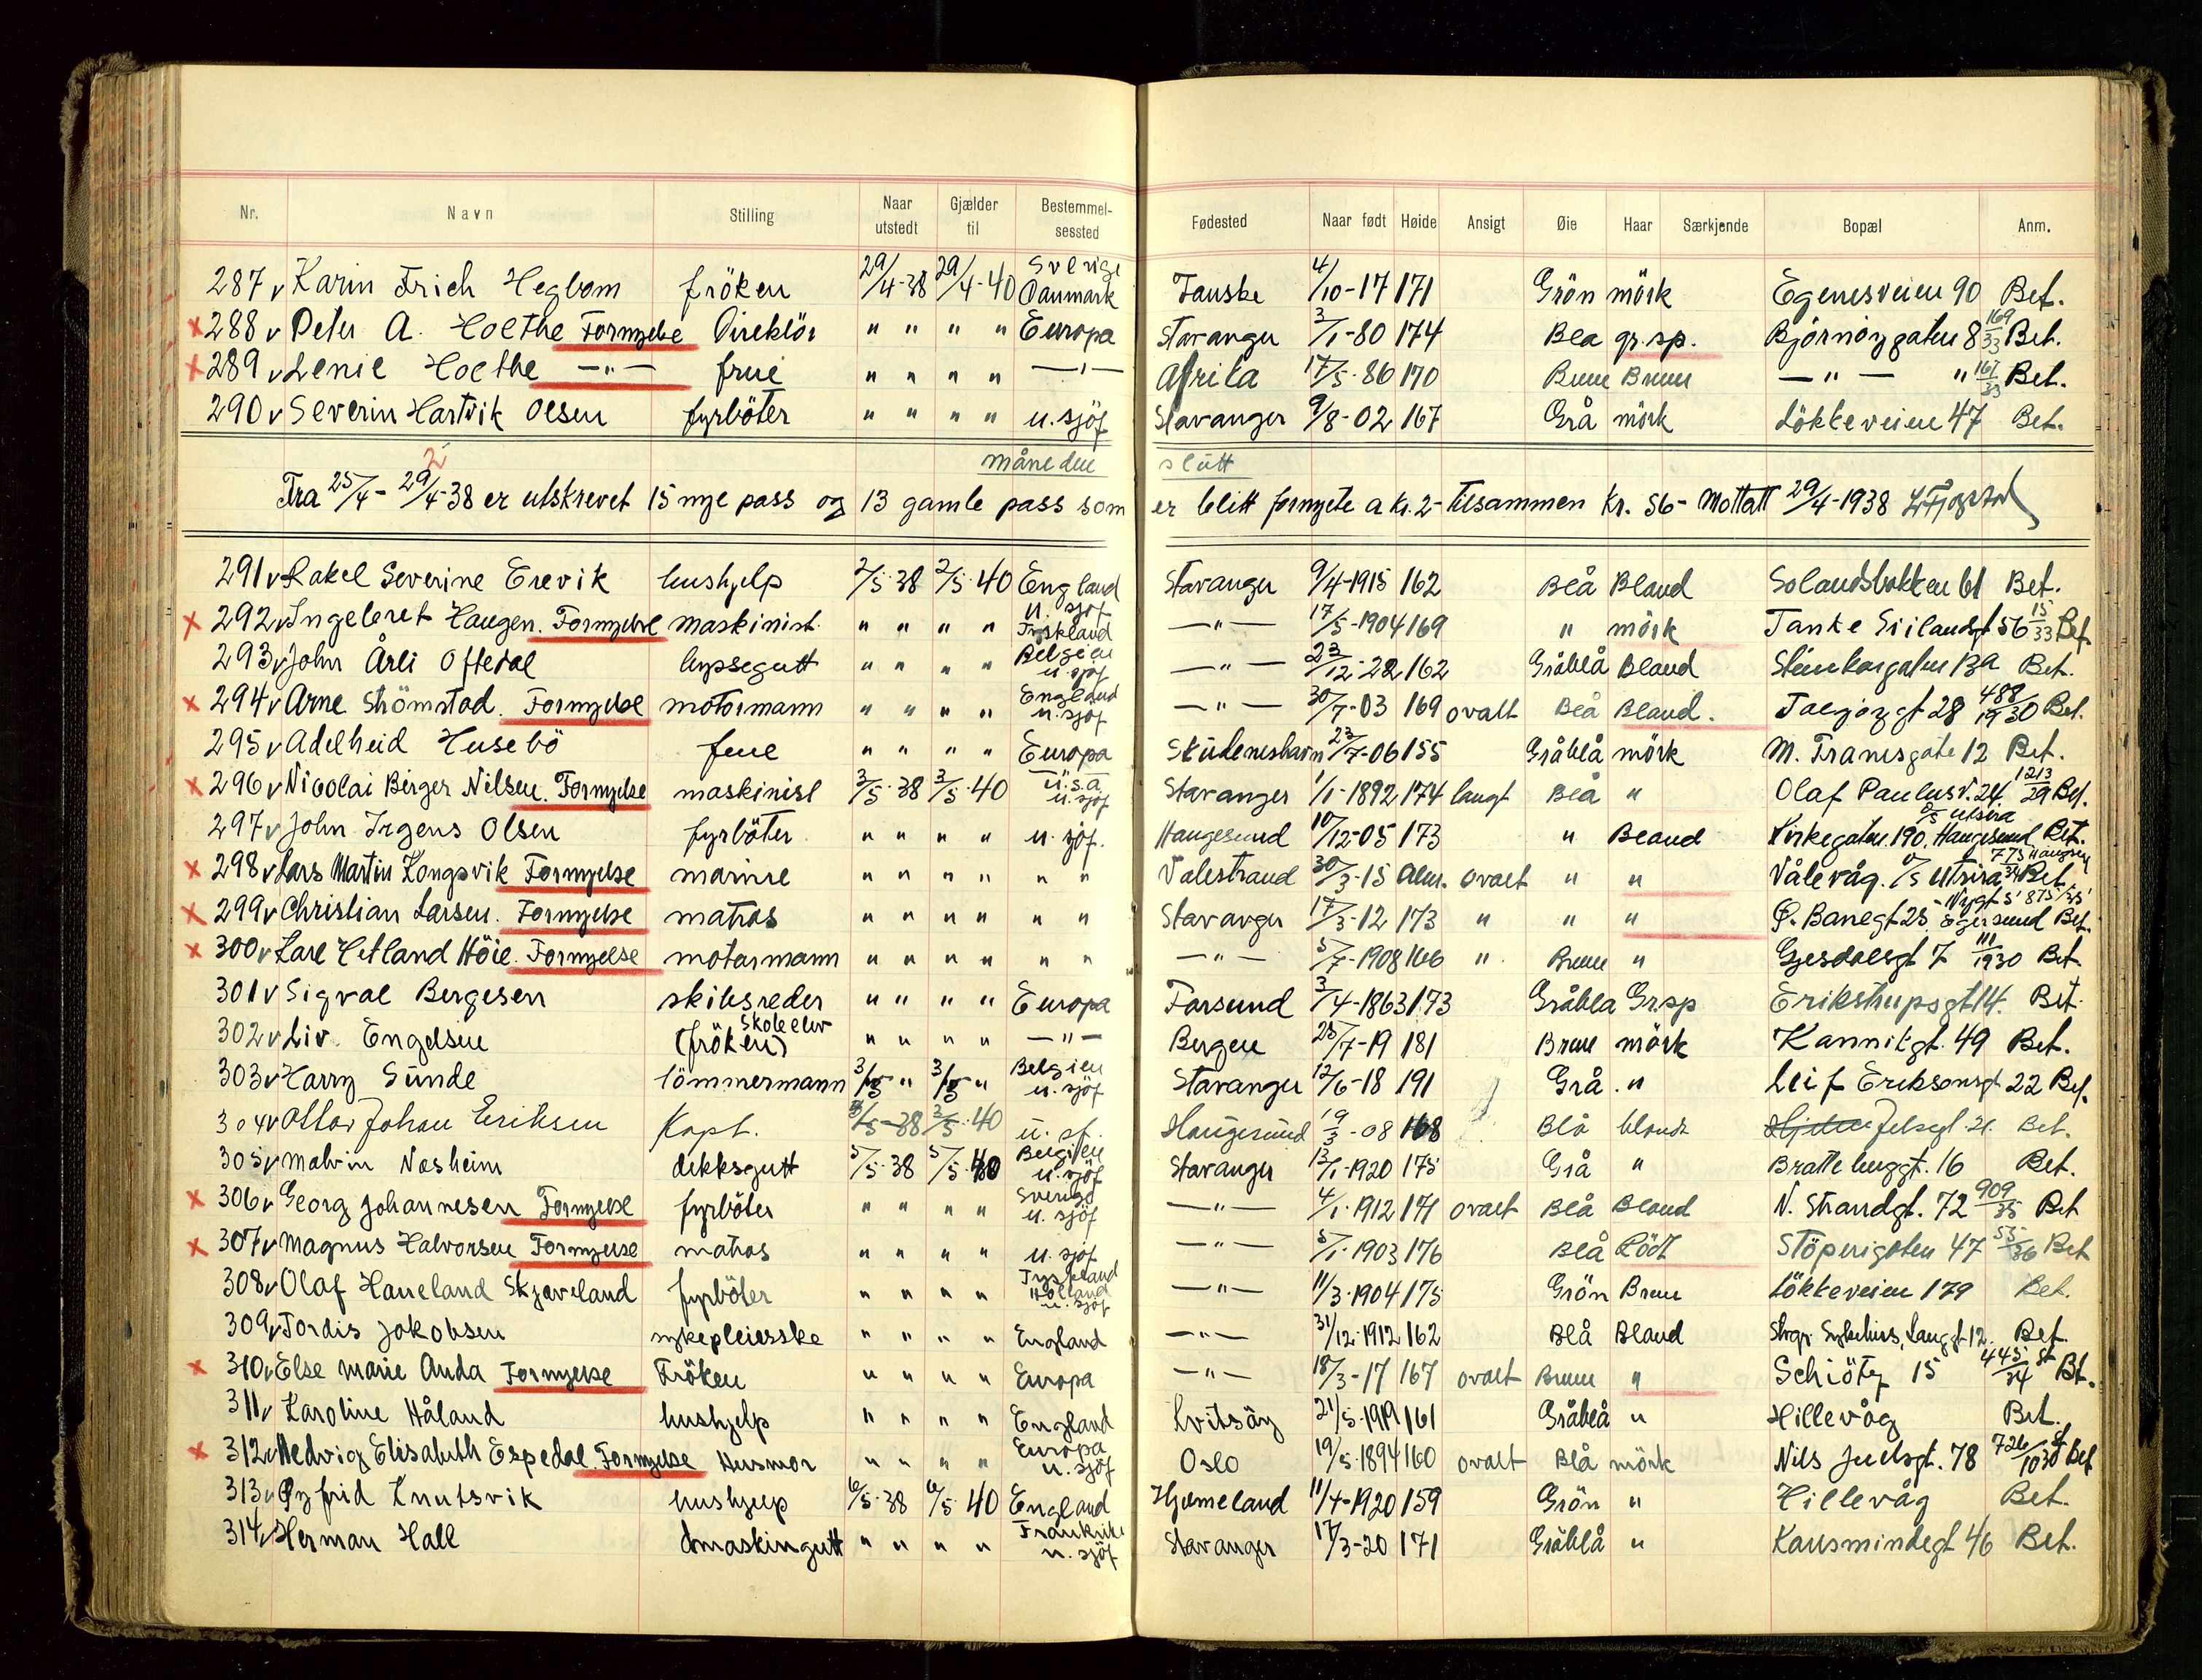 Nr. Navn Stilling Naar utstedt Gjælder til Bestemmelsessted Fødested Naar født Høide Ansigt Øie Haar Særkjende Bopæl Anm.
287 v Karin Frich Hegbom fröken 29/4-38 29/4-40 Sverige Danmark Fauske 4/10-17 171 Grön mörk Egenesveien 90 Bet.
x 288 v Peter A. Hoethe Fornyelse Direktör " " " " Europa Stavanger 3/1-80 174 Blå gr.sp. Bjørnøygaten 8 169/33 Bet.
x 289 v Lenie Hoethe —"— frue " " " " —"— Afrika 17/5-86 170 Brune Brune —"— " 161/33 Bet.
290 v Severin Hartvik Olsen fyrböter " " " " u. sjöf Stavanger 9/8-02 167 Grå mörk Lökkeveien 47 Bet.
måneden slutt
2
Fra 25/4 - 29/4-38 er utskrevet 15 nye pass og 13 gamle pass som er blitt fornyete a kr. 2- tilsammen Kr. 56- Mottatt 29/4-1938
291 v Rakel Severine Erevik hushjelp 2/5-38 2/5-40 England Stavanger 9/4-1915 162 Blå Bland Solandsbakken 61 Bet.
x 292 v Ingebret Haugen. Fornyelse maskinist " " " " u. sjöf Tyskland —"— 17/5-1904 169 " mörk Tanke Svilandsgt 56 15/33 Bet.
293 v John Årli Oftedal byssegutt " " " " Belgien u. sjöf —"— 23/12-22 162 Gråblå Bland Steinkargaten 13a Bet.
x 294 v Arne Strömstad. Fornyelse motormann " " " " England u. sjöf —"— 30/7-03 169 ovalt Blå Bland. Taegöygt 28 488/1930 Bet.
295 v Adelheid Husebö frue " " " " Europa Skudeneshavn 23/7-06 155 Gråblå mörk M. Transgate 12 Bet.
x 296 v Nicolai Birger Nilsen. Fornyelse maskinist 3/5-38 3/5-40 u.s.a. u. sjöf Stavanger 1/1-1892 174 langt Blå " Olaf Paulusv. 24. 1213/29 Bet.
297 v John Irgens Olsen fyrböter " " " " u. sjöf. Haugesund 10/12-05 173 " Bland D/S Utsira Kirkegaten 190. Haugesund Bet.
x 298 v Lars Martin Longsvik Fornyelse marine " " " " " " Valestrand 30/3-15 Alm. ovalt " " Vålevåg. D/S Utsira 775/34 Bet.
x 299 v Christian Larsen. Fornyelse matros " " " " " " Stavanger 17/3-12 173 " " " Ø. Banegt 25 Nygt 5' 875/35 Egersund Bet.
x 300 v Kare Hetland Höie. Fornyelse motormann " " " " " " —"— 5/7-1908 166 " Brune " Gjesdalsgt 7 111/1930 Bet.
301 v Sigval Bergesen skibsreder " " " " Europa Farsund 3/4-1863 173 Gråblå Gr.sp Erikstrupsgt 14. Bet.
302 v Liv. Engelsen (fröken) Skoleelev " " " " —"— Bergen 23/7-19 181 Brune mörk Kannikgt. 49 Bet.
303 v Harry Sunde tömmermann 3/5 " 3/5 " Belgien u. sjöf Stavanger 12/6-18 191 Grå " Leif Eriksonsgt 22 Bet.
304 v Ottar Johan Eriksen Kapt. 3/5-38 3/5-40 u. sf. Haugesund 19/3-08 168 Blå blondt Jelsegt. 21 Bet.
305 v Malvin Nesheim dekksgutt 5/5-38 5/5-40 Belgien u. sjöf Stavanger 13/1-1920 175 Grå " Brattebuggt. 16 Bet.
x 306 v Georg Johannesen Fornyelse fyrböter " " " " Sverige u. sjöf —"— 4/1-1912 171 ovalt Blå Bland N. Strandgt. 72 909/35 Bet
x 307 v Magnus Halvorsen Fornyelse matros " " " " u. sjöf —"— 5/1-1903 176 Blå Rödt Stöperigaten 47 53/36 Bet
308 v Olaf Haneland Skjæveland fyrböter " " " " Tyskland Holland u. sjöf —"— 11/3-1904 175 Grön Brune Lökkeveien 179 Bet.
309 v Tordis Jakobsen sykepleierske " " " " England —"— 31/12-1912 162 Blå Bland Stvgr. Sykehus, Langgt 12. Bet.
x 310 v Else Marie Anda Fornyelse Fröken " " " " Europa —"— 18/3-17 167 ovalt Brune " Schiötz 15 445/34 St Bt.
311 v Karoline Håland hushjelp " " " " England Kvitsöy 21/5-1919 161 Gråblå " Hillevåg Bet.
x 312 v Hedvig Elisabeth Espedal Fornyelse Husmor " " " " Europa u. sjöf Oslo 19/5-1894 160 ovalt Blå mörk Nils Juelsgt. 78 726/1030 St Bet
313 v Øyfrid Knutsvik hushjelp 6/5-38 6/5-40 England Hjelmeland 11/4-1920 159 Grön " Hillevåg Bet.
314 v Herman Hall maskingutt " " " " Frankrike u. sjöf Stavanger 17/3-20 171 Gråblå " Kausmindegt 46 Bet.